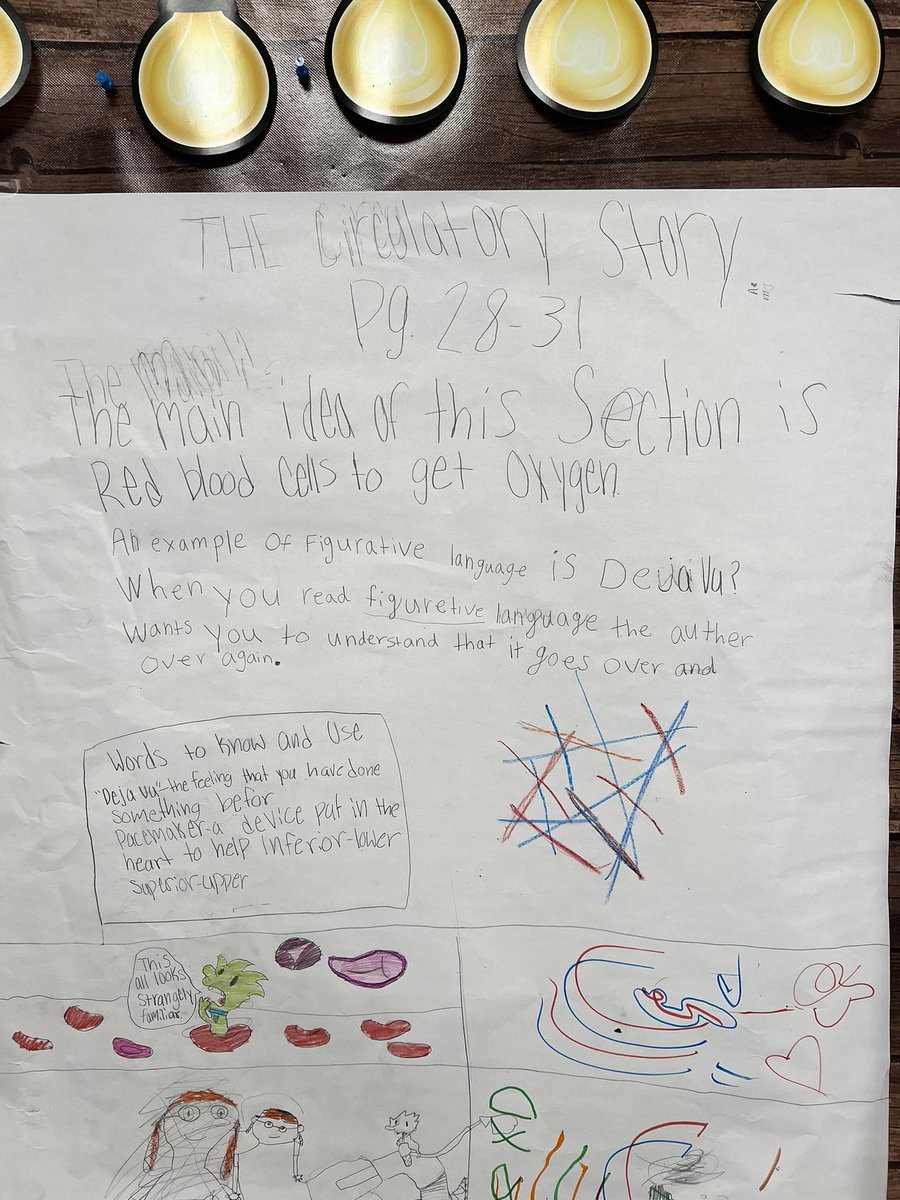 THE Circulatory Story
Pg. 28-31
The
The main idea of this Section is
Red blood cells to get Oxygen.
An example of Figurative language is Deja Vu?
When you read figuretive language the auther
Wants you to understand that it goes over and
over again.
Words to know and Use
"Deja vu"-the feeling that you have done
something befor
Pacemaker-a device put in the
heart to help Inferior-lower
superior-upper
This
all looks
Strangely
familiar